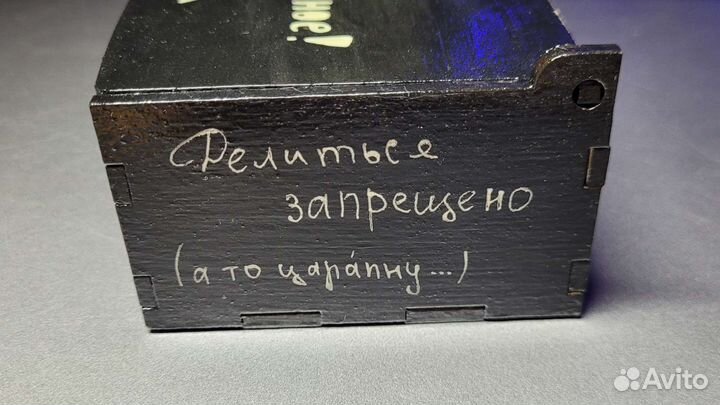 ное!
Делиться
запрещено
(а то цара́пну...)
Avito